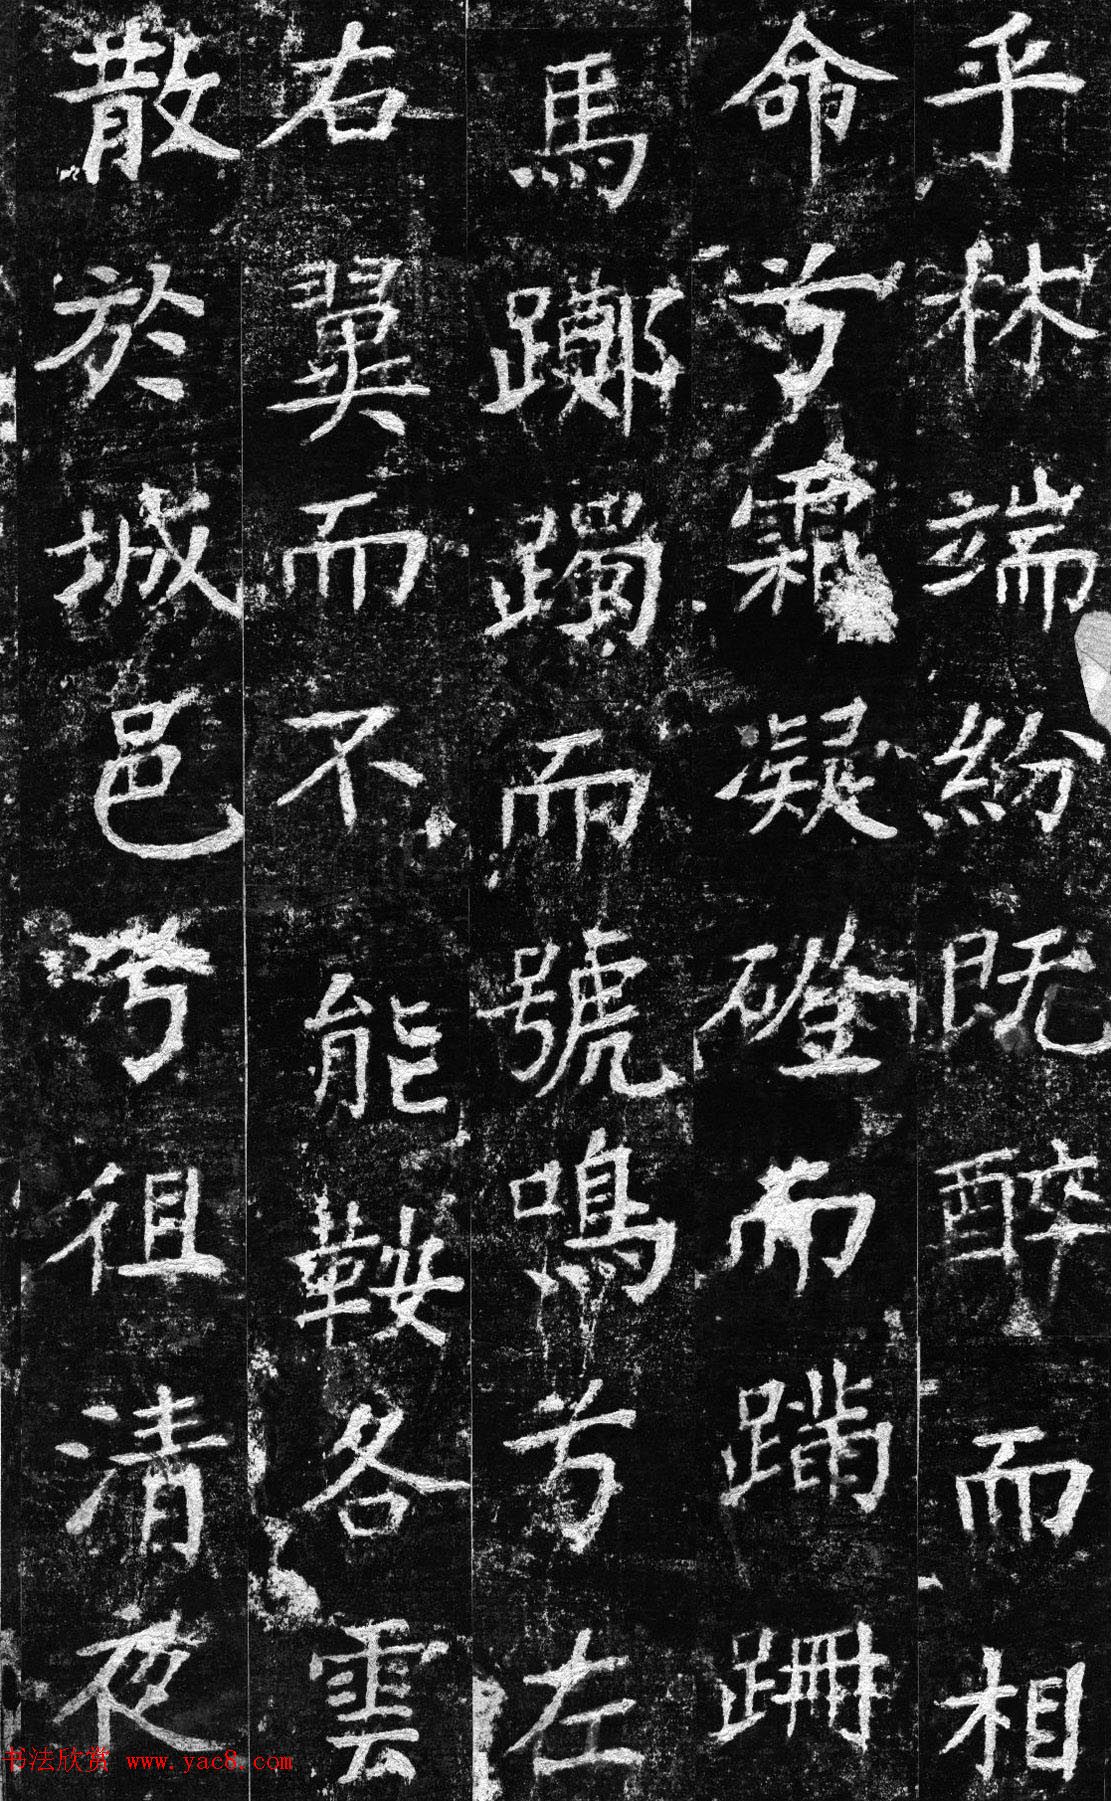 乎林端紛既醉而相
命兮霜凝磴而蹣跚
馬躑躅而號鳴兮左
右翼而不能鞍各雲
散於城邑兮徂清夜
书法欣赏 www.yac8.com